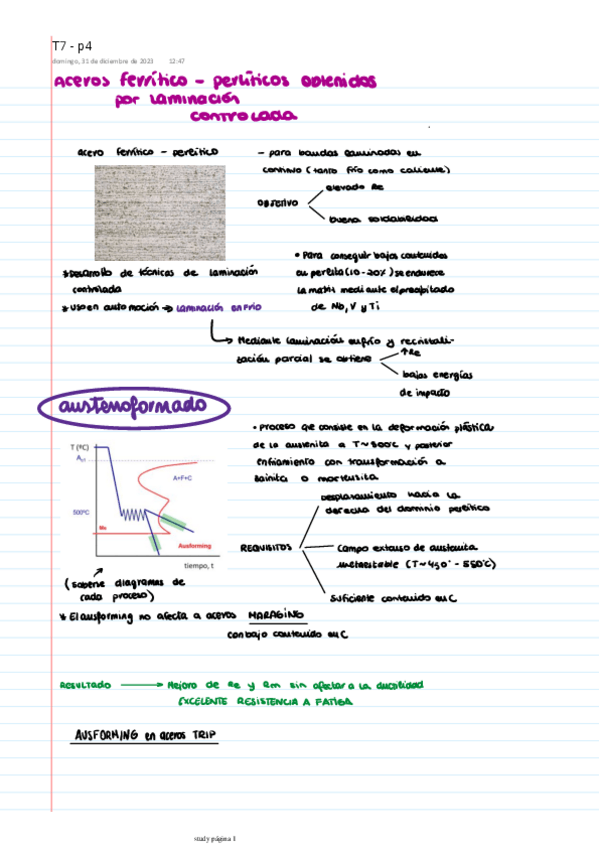 T7 - p4
domingo, 31 de diciembre de 2023 12:47
Aceros ferrítico - perlíticos obtenidos
por laminación
controlada
Acero ferrítico - perlítico
- para bandas laminadas en
continuo (tanto frío como caliente)
OBJETIVO
elevado Re
buena soldabilidad
• Para conseguir bajos contenidos
en perlita (10-20%) se endurece
la matriz mediante el precipitado
de Nb, V y Ti
* Desarrollo de técnicas de laminación
controlada
* Uso en automoción → laminación en frío
Mediante laminación en frío y recristali-
zación parcial se obtiene
↑Re
bajas energías
de impacto
austenoformado
• Proceso que consiste en la deformación plástica
de la austenita a T~500ºC y posterior
enfriamiento con transformación a
bainita o martensita
T (ºC)
A+F+C
500ºC
Ms
Ausforming
tiempo, t
REQUISITOS
Desplazamiento hacia la
derecha del dominio perlítico
Campo extenso de austenita
metaestable (T~450º - 550ºC)
Suficiente contenido en C
(saberse diagramas de
cada proceso)
* El ausforming no afecta a aceros MARAGING
con bajo contenido en C
RESULTADO → Mejora de Re y Rm sin afectar a la ductilidad
EXCELENTE RESISTENCIA A FATIGA
AUSFORMING en aceros TRIP
study página 1